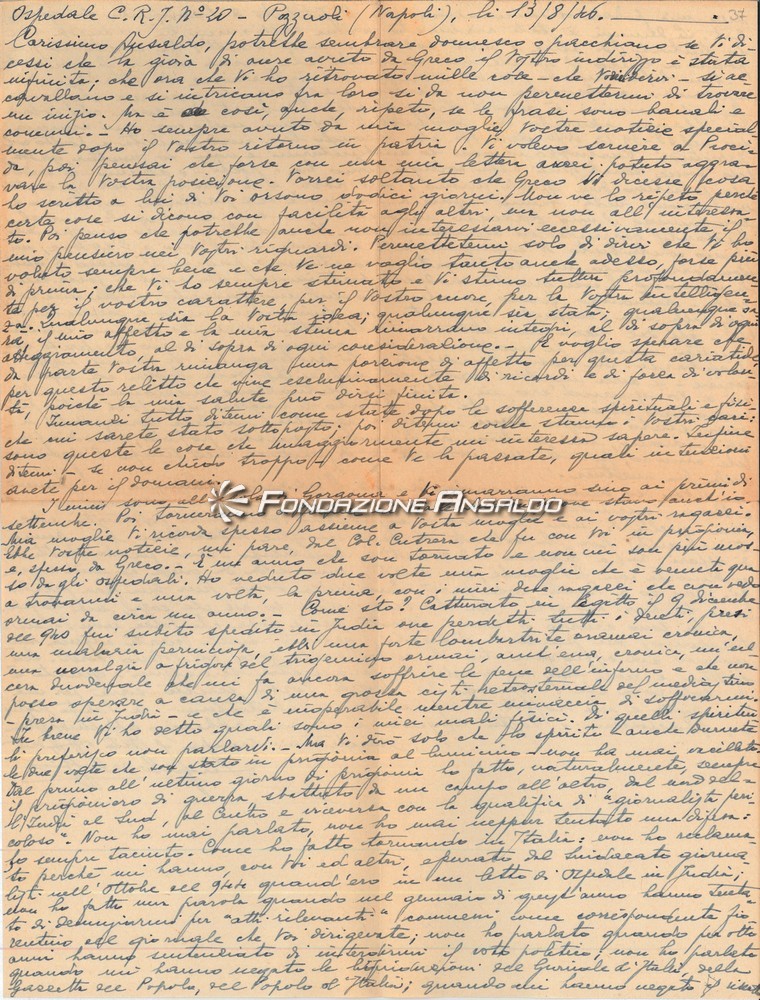 Ospedale C.R.I. Nº 20 - Pozzuoli (Napoli), lì 13/8/46. 37
Carissimo Ansaldo, potrebbe sembrare donnesco o pacchiano se Vi di-
cessi che la gioia di avere avuto da Greco il Vostro indirizzo è stata
infinita; che ora che Vi ho ritrovato mille cose - che - si ac
cavallano e si intricano fra loro sì da non permettermi di trovare
un inizio. Ma è così, anche, ripeto, se le frasi sono banali e
comuni. - Ho sempre avuto da mia moglie Vostre notizie special
mente dopo il Vostro ritorno in patria. Vi volevo scrivere a Proci
da, poi pensai che forse con una mia lettera avrei potuto aggra-
vare la Vostra posizione. Vorrei soltanto che Greco Vi dicesse cosa
ho scritto a lui di Voi or sono dodici giorni. Non ve lo ripeto perchè
certe cose si dicono con facilità agli altri, ma non all'interessa-
to. Poi penso che potrebbe anche non interessarvi eccessivamente il
mio pensiero nei Vostri riguardi. Permettetemi solo di dirvi che Vi ho
voluto sempre bene e che Ve ne voglio tanto anche adesso, forse più
di prima; che Vi ho sempre stimato e Vi stimo tuttora profondamen-
te per il vostro carattere, per il Vostro cuore, per la Vostra intelligen-
za. Qualunque sia la Vostra idea; qualunque sia stata; qualunque sa-
rà, il mio affetto e la mia stima rimarranno integri, al di sopra di ogni
atteggiamento, al di sopra di ogni considerazione. - E voglio sperare che
da parte Vostra rimanga una porzione di affetto per questa cariatide,
per questo relitto che vive esclusivamente di ricordi e di forza di volon-
tà, poichè la mia salute può dirsi finita.
Innanzi tutto ditemi come state dopo le sofferenze spirituali e fisi-
che cui sarete stato sottoposto; poi ditemi come stanno i Vostri cari:
sono queste le cose che maggiormente mi interessa sapere. Infine
ditemi - se non chiedo troppo - come Ve la passate, quali intenzioni
avete per il domani.
I miei sono Gorgona e vi rimarranno sino ai primi di
settembre. Poi stavo anch'io.
Mia moglie Vi ricorda spesso assieme a Vostra moglie e ai vostri ragazzi.
Ebbe Vostre notizie, mi pare, dal Col. che fu con Voi in prigionia,
e, spesso, da Greco. - È un anno che son tornato e non mi son più mos-
so dagli ospedali. Ho veduto due volte mia moglie che è venuta qua
a trovarmi e una volta, la prima, con i miei due ragazzi che non vedo
ormai da circa un anno. - Come sto? Catturato in Egitto il 9 dicembre
del 940 fui subito spedito in India ove perdetti tutti i denti, presi
una malaria perniciosa, ebbi una forte lombartrite oramai cronica,
una nevralgia a frigore del trigemino ormai, anch'essa, cronica, un'ul-
cera duodenale che mi fa ancora soffrire le pene dell'inferno e che non
posso operare a causa di una grossa cisti retrosternale del mediastino
- presa in India - e che è inoperabile mentre minaccia di soffocarmi.
In breve Vi ho detto quali sono i miei mali fisici. Di quelli spiritua
li preferisco non parlarvi. - Ma Vi dirò solo che lo spirito - anche durante
le due volte che son stato in prigionia al lumicino - non ha mai vacillato.
Dal primo all'ultimo giorno di prigionia ho fatto, naturalmente, sempre
il prigioniero di guerra sbattuto da un campo all'altro, dal nord del-
l'India al Sud, al Centro e viceversa con la qualifica di "giornalista peri-
coloso". Non ho mai parlato, non ho mai neppur tentato una difesa:
ho sempre taciuto. Come ho fatto tornando in Italia: non ho reclama
to perchè mi hanno, con Voi ed altri, epurato dal Sindacato giorna-
listi nell'Ottobre del 944 quand'ero in un letto di Ospedale in India;
non ho fatto una parola quando nel gennaio di quest'anno hanno tenta-
to di denunziarmi per "atti rilevanti" commessi come corrispondente fio-
rentino del giornale che Voi dirigevate; non ho parlato quando per otto
anni hanno sentenziato di interdirmi il voto politico; non ho parlato
quando mi hanno negato le liquidazioni del Giornale d'Italia, della
Gazzetta del Popolo, del Popolo d'Italia; quando mi hanno negato
FONDAZIONE ANSALDO